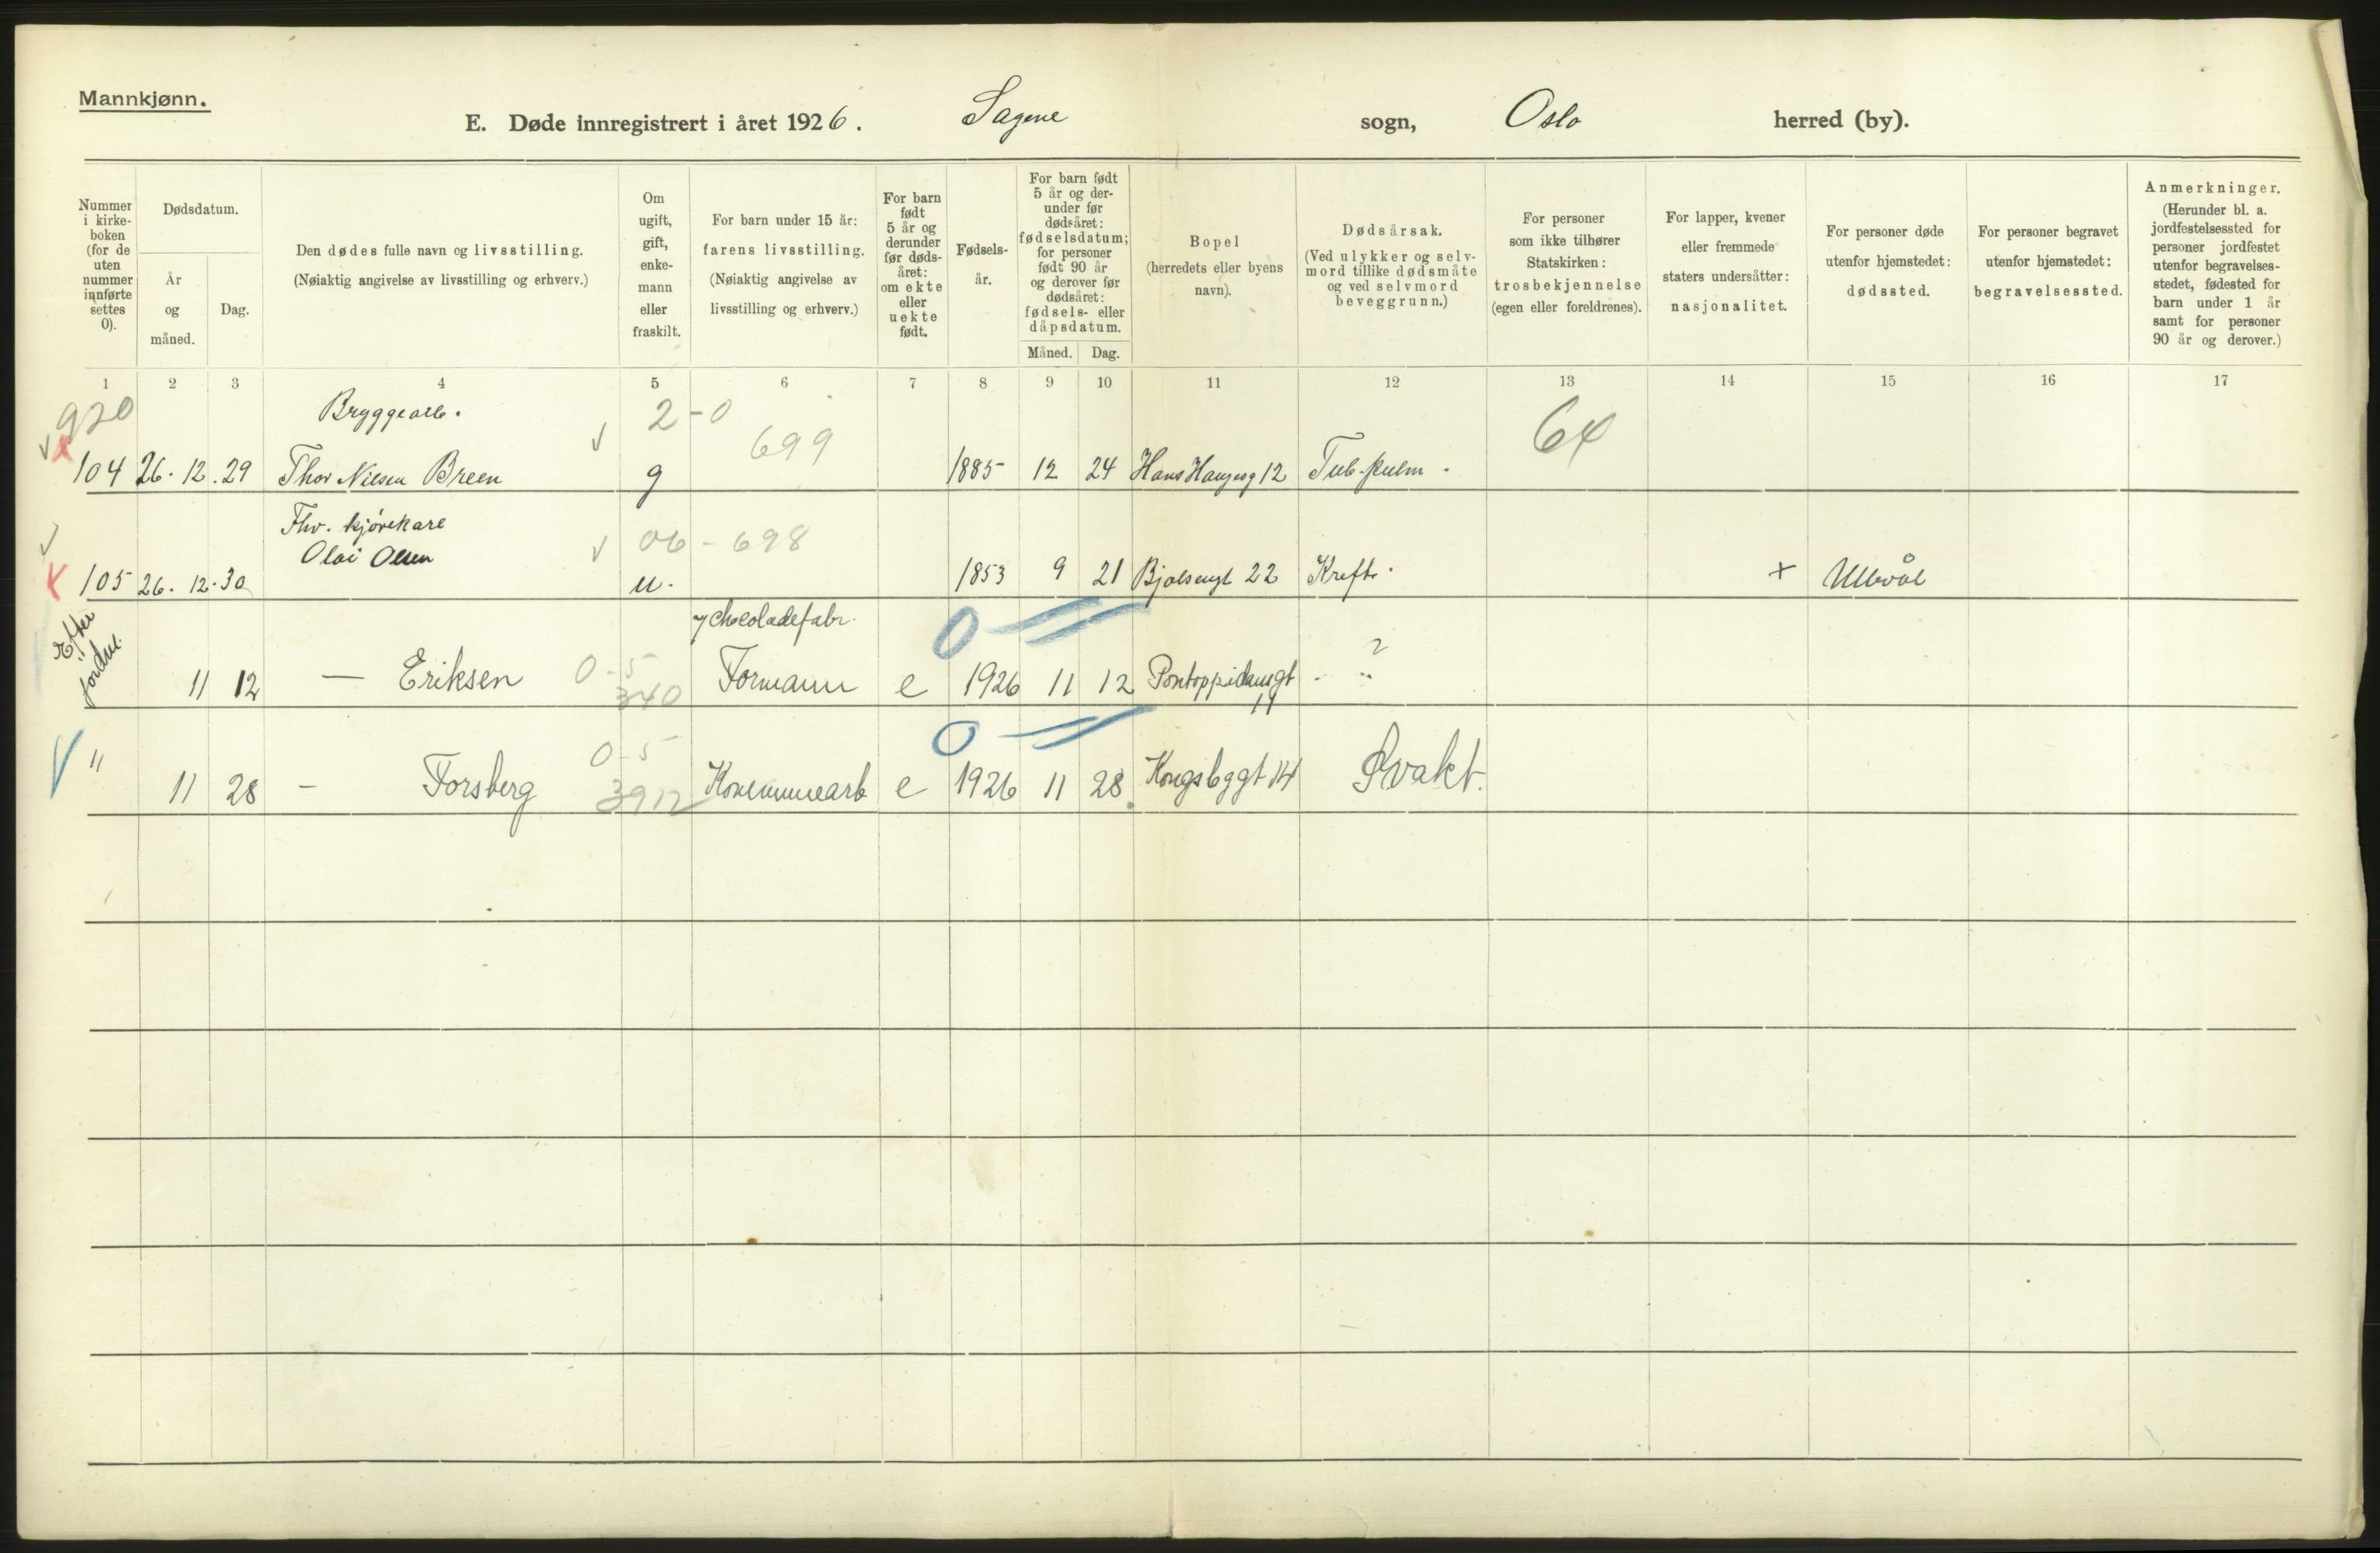 Mannkjønn.
E. Døde innregistrert i året 1926. Sagene sogn, Oslo herred (by).
Nummer i kirke- boken (for de uten nummer innførte settes 0).
Dødsdatum.
År og måned.
Dag.
Den dødes fulle navn og livsstilling.
(Nøiaktig angivelse av livsstilling og erhverv.)
Om ugift, gift, enke- mann eller fraskilt.
For barn under 15 år:
farens livsstilling.
(Nøiaktig angivelse av
livsstilling og erhverv.)
For barn født 5 år og derunder før døds- året: om ekte eller uekte født.
Fødsels- år.
For barn født 5 år og der- under før dødsåret: fødselsdatum; for personer født 90 år og derover før dødsåret: fødsels- eller dåpsdatum.
Måned. Dag.
Bopel
(herredets eller byens
navn).
Dødsårsak.
(Ved ulykker og selv-
mord tillike dødsmåte
og ved selvmord
beveggrunn.)
For personer
som ikke tilhører
Statskirken:
trosbekjennelse
(egen eller foreldrenes).
For lapper, kvener
eller fremmede
staters undersåtter:
nasjonalitet.
For personer døde
utenfor hjemstedet:
dødssted.
For personer begravet
utenfor hjemstedet:
begravelsessted.
Anmerkninger.
(Herunder bl. a.
jordfestelsessted for
personer jordfestet
utenfor begravelses-
stedet, fødested for
barn under 1 år
samt for personer
90 år og derover.)
1 2 3 4 5 6 7 8 9 10 11 12 13 14 15 16 17
920 Bryggearb. 2-0 699 64
104 26. 12. 29 Thor Nilsen Breen g 1885 12 24 Hans Haugesg 12 Tub. pulm.
Fhv. kjørekare
Olai Olsen 06-698
105 26. 12. 30 u. 1853 9 21 Bjølsengt 22 Kreft. + Ullevål
Efter jordm. chocoladefabr. 0
11 12 — Eriksen 0-5 340 Formann e 1926 11 12 Pontoppidansgt 11 ?
" 0-5 0
11 28 - Forsberg 3912 e 1926 11 28. Kongsbggt 14 Svakt.